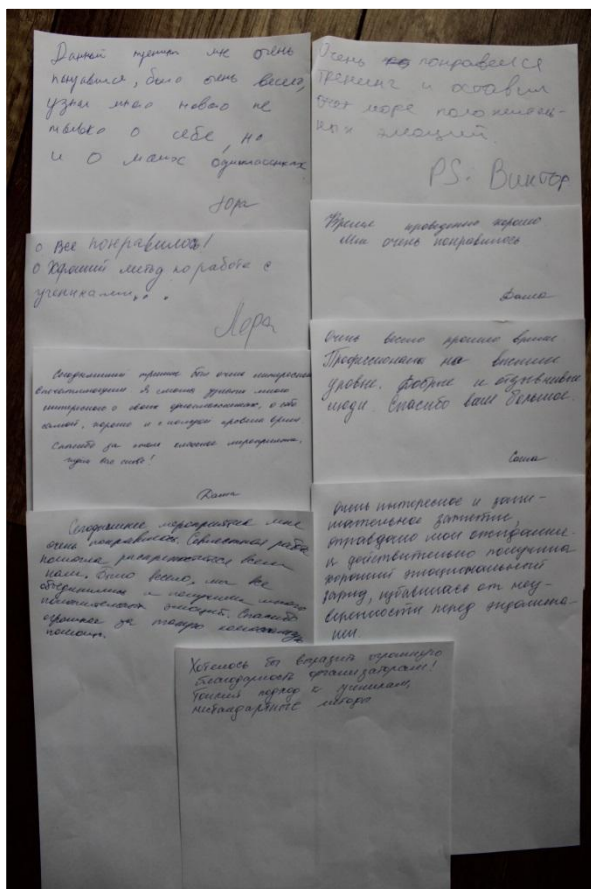 Данный тренинг мне очень
понравился, было очень весело,
узнал много нового не
только о себе, но
и о моих одноклассниках.
Юра
Очень понравился
тренинг и оставил
море положитель-
ных эмоций.
PS. Виктор
О Все понравилось!
О Хороший метод по работе с
учениками...
Лера
Время проведенно хорошо
Мне очень понравилось
Даша
Сегодняшний тренинг был очень интересным
впечатляющим Я смогла узнать много
интересного о своих одноклассниках, о себе
самой, хорошо и с пользой провела время
Спасибо за такое классное мероприятие,
Даша
Очень весело прошло время.
Профессионалы на высшем
уровне. Добрые и отзывчивые
люди. Спасибо вам большое.
Саша
Сегодняшнее мероприятие мне
очень понравилось. Совместная работа
помогла раскрепоститься всем
нам. Было весело, мы все
объединились и получили много
положительных эмоций. Спасибо
огромное за такую
помощь.
Очень интересное и зани-
мательное занятие,
оправдало мои ожидания.
я действительно получила
хороший эмоциональный
заряд, избавилась от неу-
веренности перед экзамена-
ми.
Хотелось бы выразить огромную
благодарность организаторам!
Тонкий подход к ученикам,
нестандартные методы